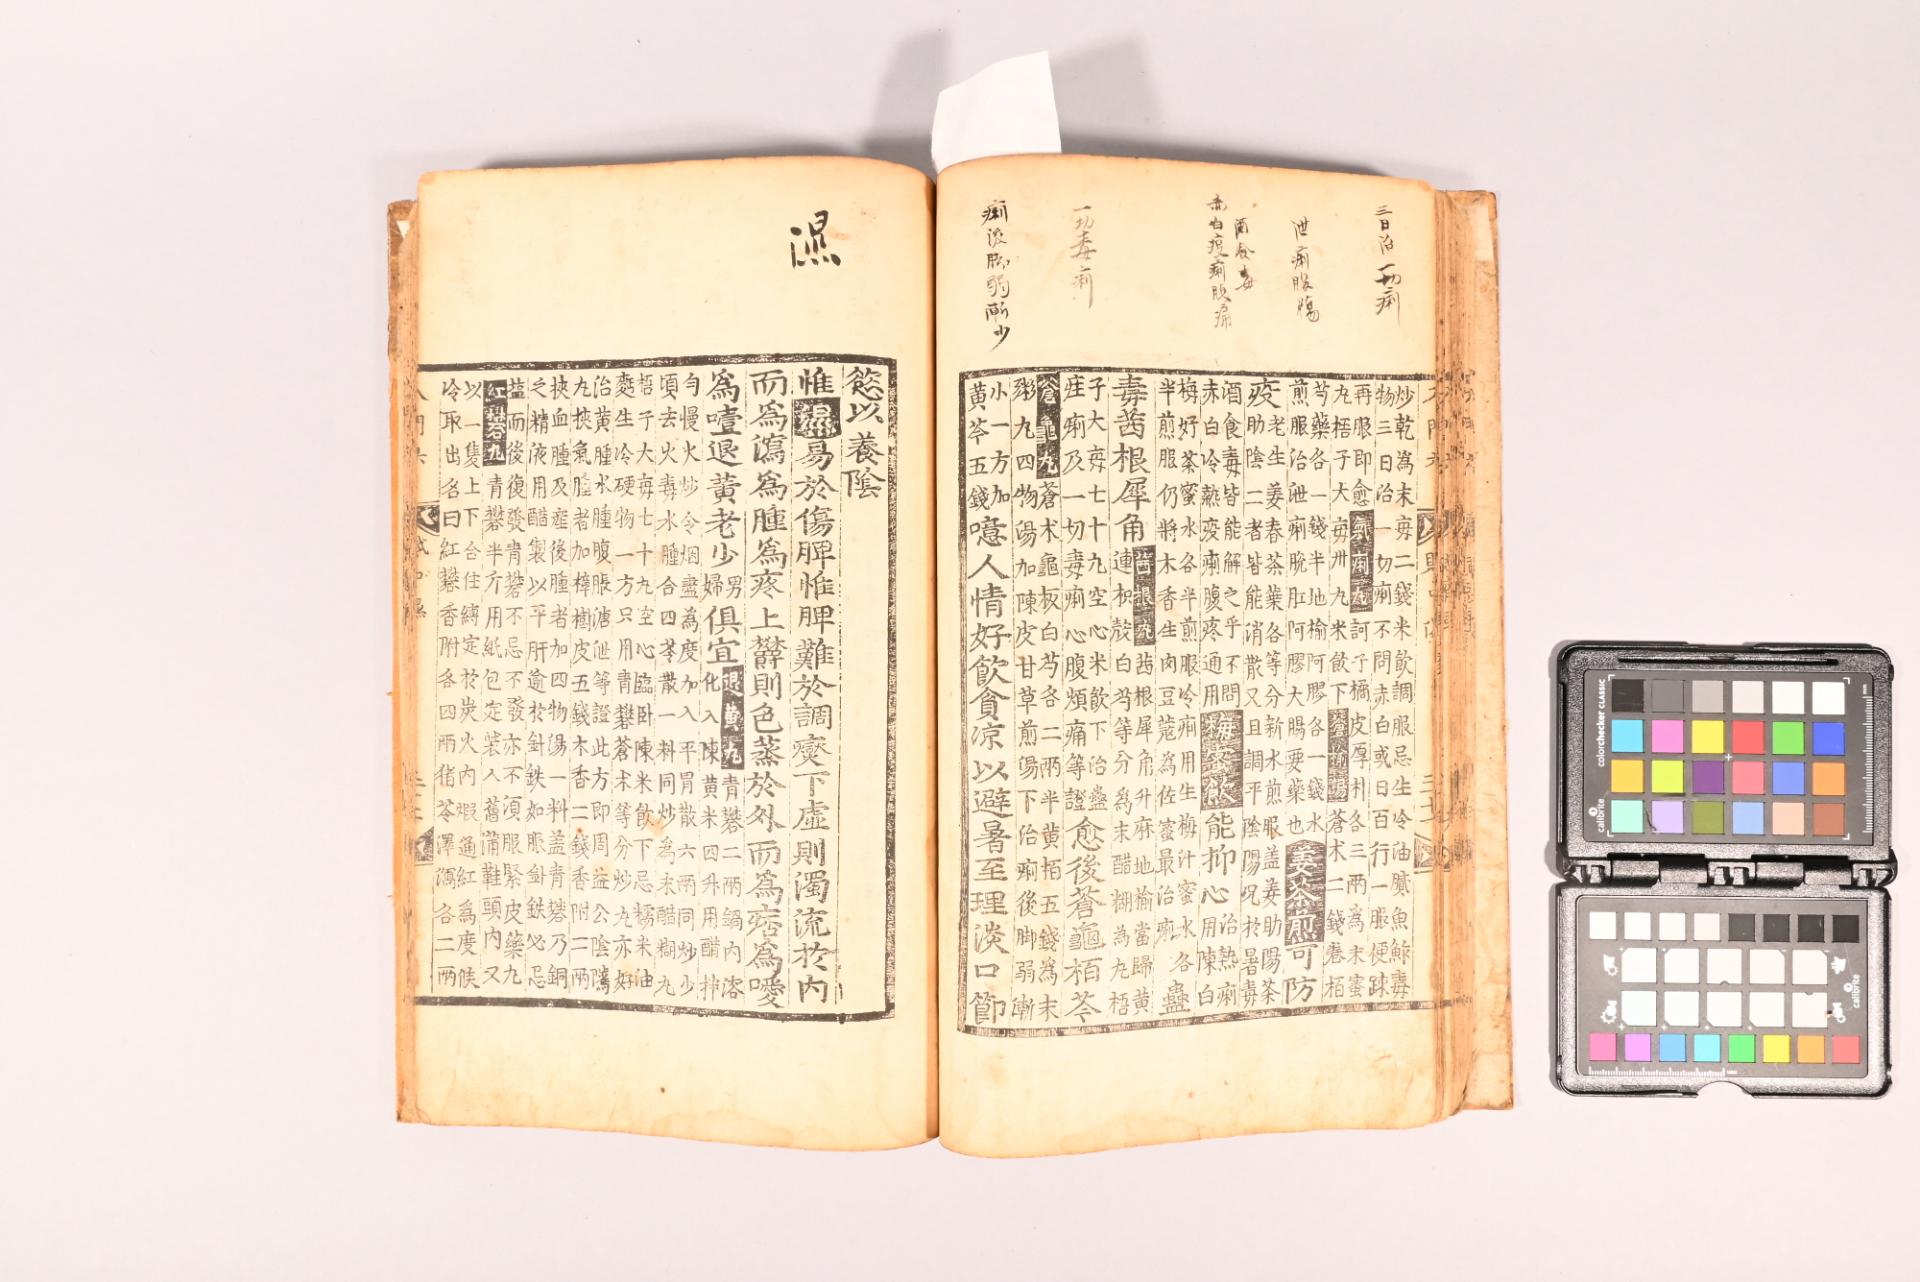 三日治一切痢
泄痢腹傷
酒食毒
赤白疫痢腹痛
一切毒痢
痢後脚弱漸少
炒乾為末每二錢米飲調服忌生冷油膩魚鮓毒
物三日治一切痢不問赤白或日百行一服便疎
再服即愈氣痢丸訶子橘皮厚朴各三兩為末蜜
丸梧子大每卅丸米飲下蒼地湯蒼朮二錢卷栢
芍藥各一錢半地榆阿膠各一錢水
煎服治泄痢脫肛阿膠大腸要藥也姜茶煎可防
疫老生姜春茶葉各等分新水煎服盖姜助陽茶
助陰二者皆能消散又且調平陰陽况於暑毒
酒食毒皆能解之乎不問
赤白冷熱疫痢腹疼通用梅蜜飲能抑心治熱痢用陳白
梅好茶蜜水各半煎服冷痢用生梅汁蜜水各
半煎服仍將木香生肉豆蔻為佐蜜最治痢蠱
毒茜根犀角連枳殼茜根丸茜根犀角升麻地榆當歸黃
連枳殼白芍等分為末醋糊為丸梧
子大每七十丸空心米飲下治蠱
疰痢及一切毒痢心腹煩痛等證愈後蒼龜栢芩
蒼龜丸蒼朮龜板白芍各二兩半黃栢五錢為末
粥丸四物湯加陳皮甘草煎湯下治痢後脚弱漸
小一方加
黃芩五錢噫人情好飲貪涼以避暑至理淡口節
慾以養陰
惟濕易於傷脾惟脾難於調爕下虛則濁流於內
而為瀉為腫為疼上欝則色蒸於外而為痞為噯
為噎退黃老少男婦俱宜化退黃丸青礬二兩鍋內溶
化入陳黃米四升用醋拌
勻慢火炒令烟盡為度加入平胃散六兩同炒少
頃去火毒水腫合四苓散一料同炒為末醋糊丸
梧子大每七十丸空心臨卧陳米飲下忌糯米油
麪生冷硬物一方只用青礬蒼朮等分炒丸亦好
治黃腫水腫腹脹溏泄等證此方即周益公陰隲
丸挾氣膧者加樟樹皮五錢木香二錢香附二兩
挾血腫及瘧後腫者加四物湯一料盖青礬乃銅
之精液用醋製以平肝逾於針鉄如服針鉄必忌
塩而後復發青礬不忌不發亦不須服緊皮藥丸
紅礬丸青礬半斤用紙包定裝入舊蒲鞋頭內又
以一隻上下合住縛定於炭火內煆通紅為度候
冷取出名曰紅礬香附各四兩猪苓澤瀉各二兩